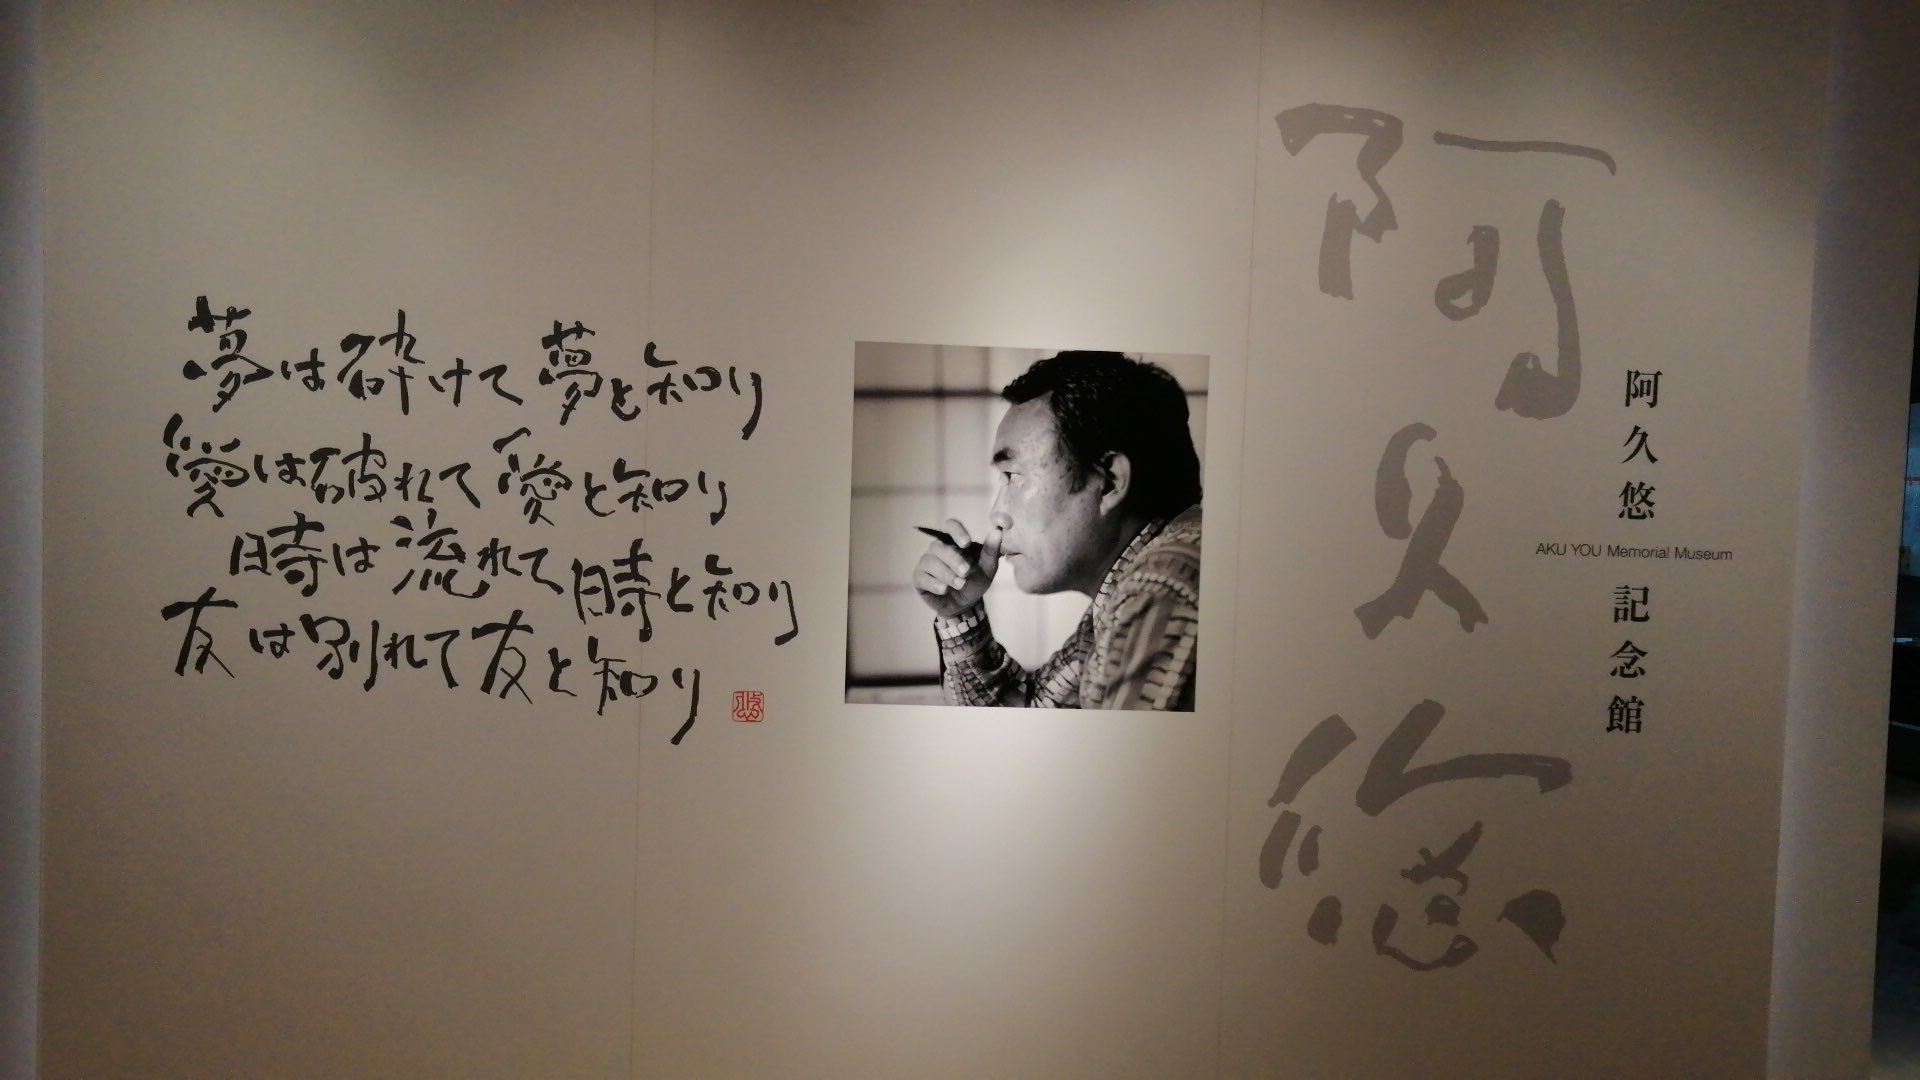 夢は砕けて夢と知り
愛は破れて愛と知り
時は流れて時と知り
友は別れて友と知り
悠
阿久悠
阿久悠
AKU YOU Memorial Museum
記念館